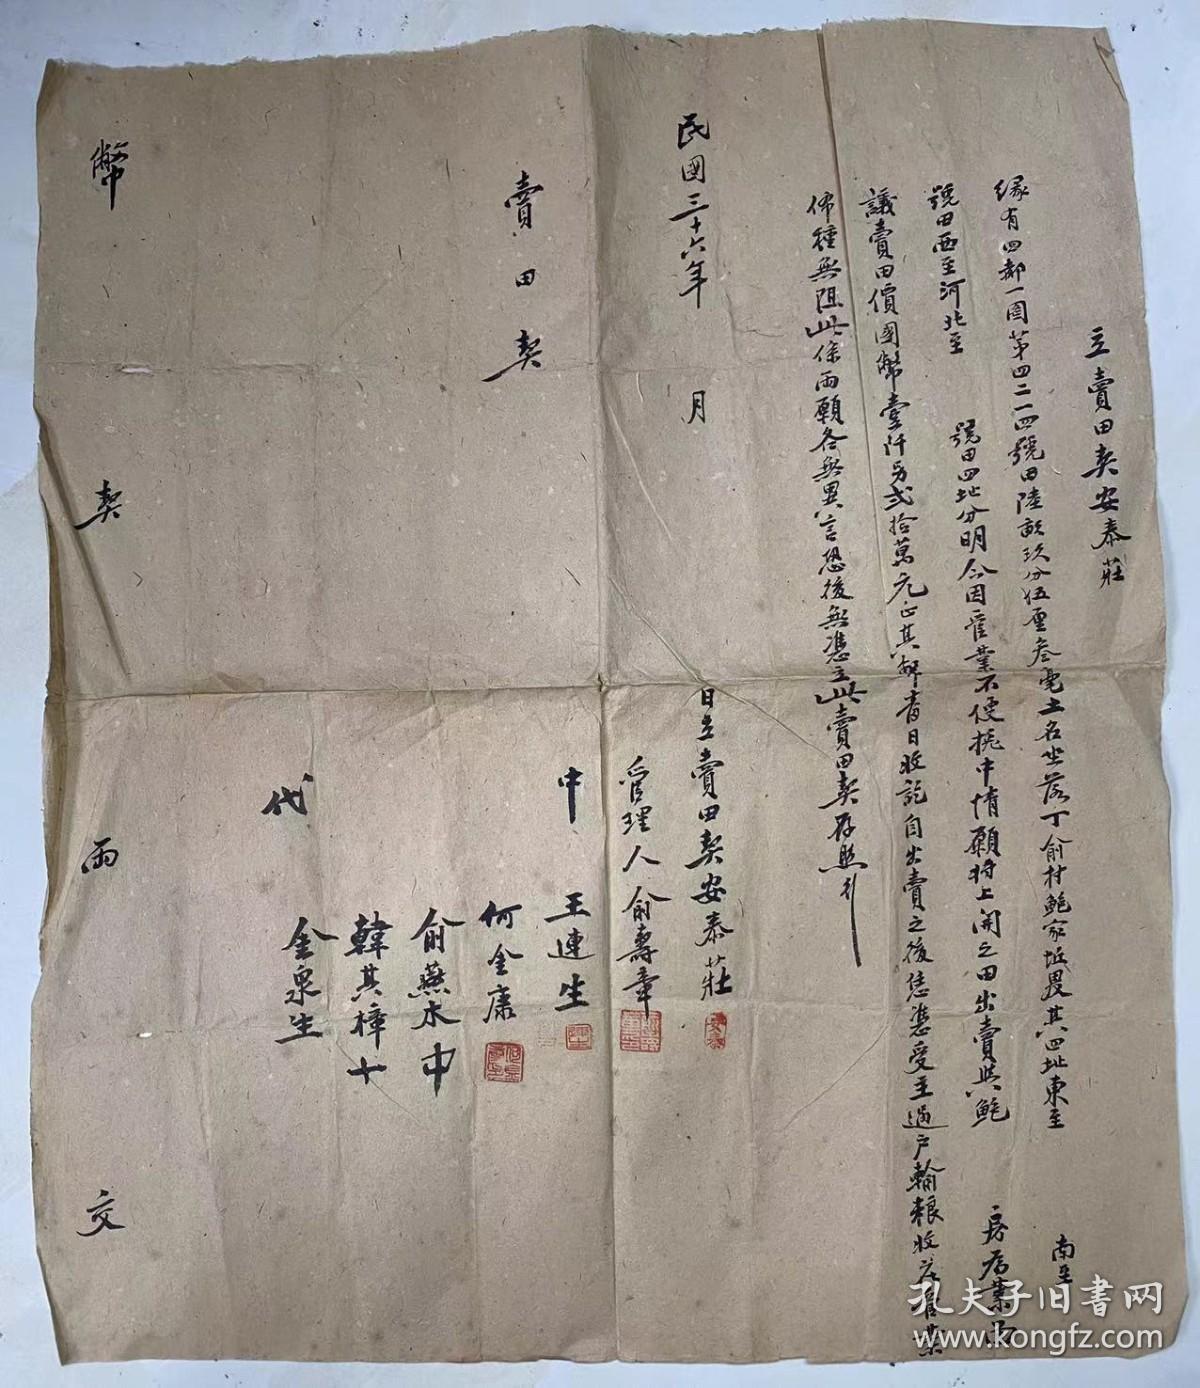 立賣田契安泰莊
緣有四都一圖第四二一四號田陸畝玖分伍厘叁毫土名坐落丁俞村鮑家坵畏其四址東至 南至
號田西至河北至 號田四址分明今因管業不便挽中情願將上開之田出賣與鮑 房為業面
議賣田價國幣壹阡另弍拾萬元正其幣當日收訖自出賣之後恁憑受主過户輸粮收花管業
佈種無阻此係兩願各無異言恐後無憑立此賣田契存照行
民國三十六年 月 日立賣田契安泰莊
管理人俞壽章
中 王連生
何金康
俞燕水中
韓其樟十
代 金泉生
賣田契
幣契兩交
孔夫子旧书网
www.kongfz.com